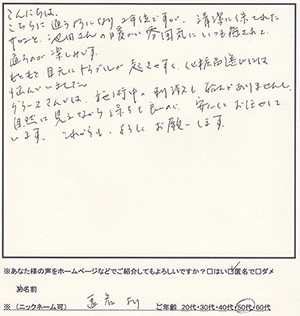 こんにちは。
こちらに通うようになり2年位ですが、清潔に保たれた
サロンと、池田さんの暖かい雰囲気にいつも癒されて、
通うのが楽しみです。
もともと目元にトラブルが起きやすく、化粧品選びには
悩んでいました。
グラースさんでは、施術中の刺激も痛みがありませんし、
自然に見えながら保ちも良いので、安心しておまかせして
います。これからも、よろしくお願いします。
※あなた様の声をホームページなどでご紹介してもよろしいですか？□はい☑匿名で□ダメ
お名前
※（ニックネーム可） ご年齢 20代・30代・40代・50代・60代